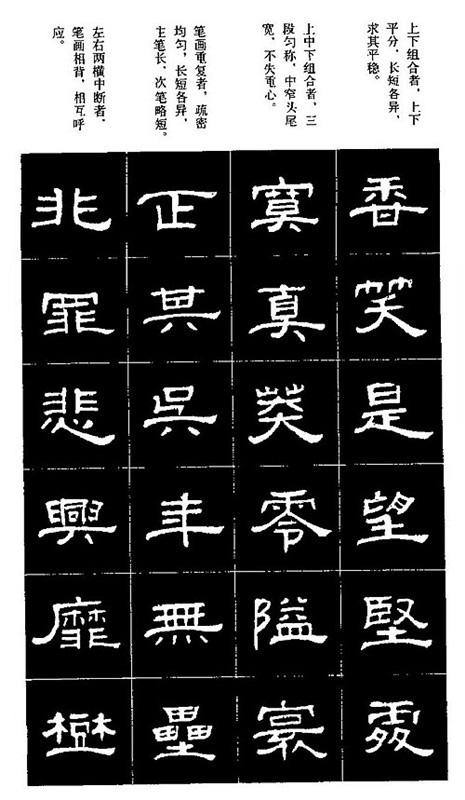 上下组合者，上下
平分，长短各异，
求其平稳。
香笑是望堅
上中下组合者，三
段匀称，中窄头尾
宽，不失重心。
寞真零隘
笔画重复者，疏密
均匀，长短各异，
主笔长，次笔略短。
正其吳年無壘
左右两横中断者，
笔画相背，相互呼
应。
非罪悲興靡